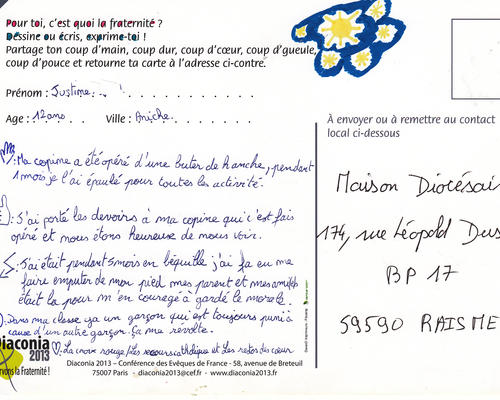 Pour toi, c'est quoi la fraternité ?
Dessine ou écris, exprime-toi !
Partage ton coup d'main, coup dur, coup d'cœur, coup d'gueule,
coup d'pouce et retourne ta carte à l'adresse ci-contre.
Prénom : Justine
Age : 12 ans Ville : Aniche
: Ma copine a été opéré d'une buter de hanche, pendant
1 mois je l'ai épaulé pour toutes les activité.
: J'ai porté les devoirs à ma copine qui c'est fais
opéré et nous étons heureuse de nous voir.
: J'ai était pendant 5 mois en béquille j'ai fa eu me
faire emputer de mon pied mes parent et mes amis
était là pour m'en courage à gardé le morale.
: Dans ma classe ya un garçon qui est toujours puni à
cause d'un autre garçon. Ça me révolte.
: La croix rouge, les cathólique et Les restos du cœur
Diaconia
2013
servons la Fraternité !
Diaconia 2013 – Conférence des Evêques de France - 58, avenue de Breteuil
75007 Paris - diaconia2013@cef.fr - www.diaconia2013.fr
À envoyer ou à remettre au contact
local ci-dessous
Maison Diocésai
174, rue Léopold Dus
BP 17
59590 RAISME